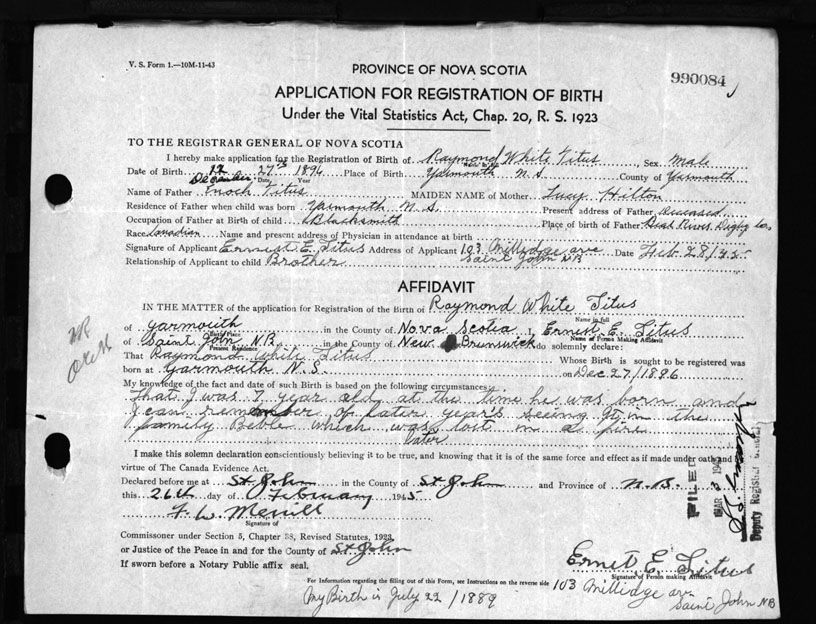 V. S. Form 1.—10M-11-43
PROVINCE OF NOVA SCOTIA
990084
APPLICATION FOR REGISTRATION OF BIRTH
Under the Vital Statistics Act, Chap. 20, R. S. 1923
TO THE REGISTRAR GENERAL OF NOVA SCOTIA
I hereby make application for the Registration of Birth of Raymond White Titus, Sex male
Date of Birth 12 December 27th 1896 Place of Birth Yarmouth N.S. County of Yarmouth
Date Year
Name of Father Enoch Titus MAIDEN NAME of Mother Lucy Hilton
Residence of Father when child was born Yarmouth N.S. Present address of Father Deceased
Occupation of Father at Birth of child Blacksmith Place of birth of Father Digby Co,
Race Canadian Name and present address of Physician in attendance at birth
Signature of Applicant Ernest E. Titus Address of Applicant 103 Millidge ave Saint John NB Date Feb 28/45
Relationship of Applicant to child Brother
AFFIDAVIT
IN THE MATTER of the application for Registration of the Birth of Raymond White Titus
Name in full
of Yarmouth in the County of Nova Scotia I, Ernest E. Titus
Birth Place Name of Person Making Affidavit
of Saint John N.B. in the County of New Brunswick do solemnly declare:
Persons Residence
That Raymond White Titus Whose Birth is sought to be registered was
born at Yarmouth N.S. on Dec 27/1896
My knowledge of the fact and date of such Birth is based on the following circumstances:
That I was 7 year old at the time he was born and
I can remember of later years seeing it in the
family Beble which was lost in a fire
later
I make this solemn declaration conscientiously believing it to be true, and knowing that it is of the same force and effect as if made under oath and by
virtue of The Canada Evidence Act.
Declared before me at St John in the County of St John and Province of N.B.
this 26th day of February 1945
F. W. Merrill
Signature of
Commissoner under Section 5, Chapter 38, Revised Statutes, 1923,
or Justice of the Peace in and for the County of St John
If sworn before a Notary Public affix seal.
Ernest E. Titus
Signature of Person making Affidavit
For Information regarding the filling out of this Form, see Instructions on the reverse side
103 Millidge ave
Saint John NB
My Birth is July 22/1889
FILED
MAR 2 194
Deputy Registrar General